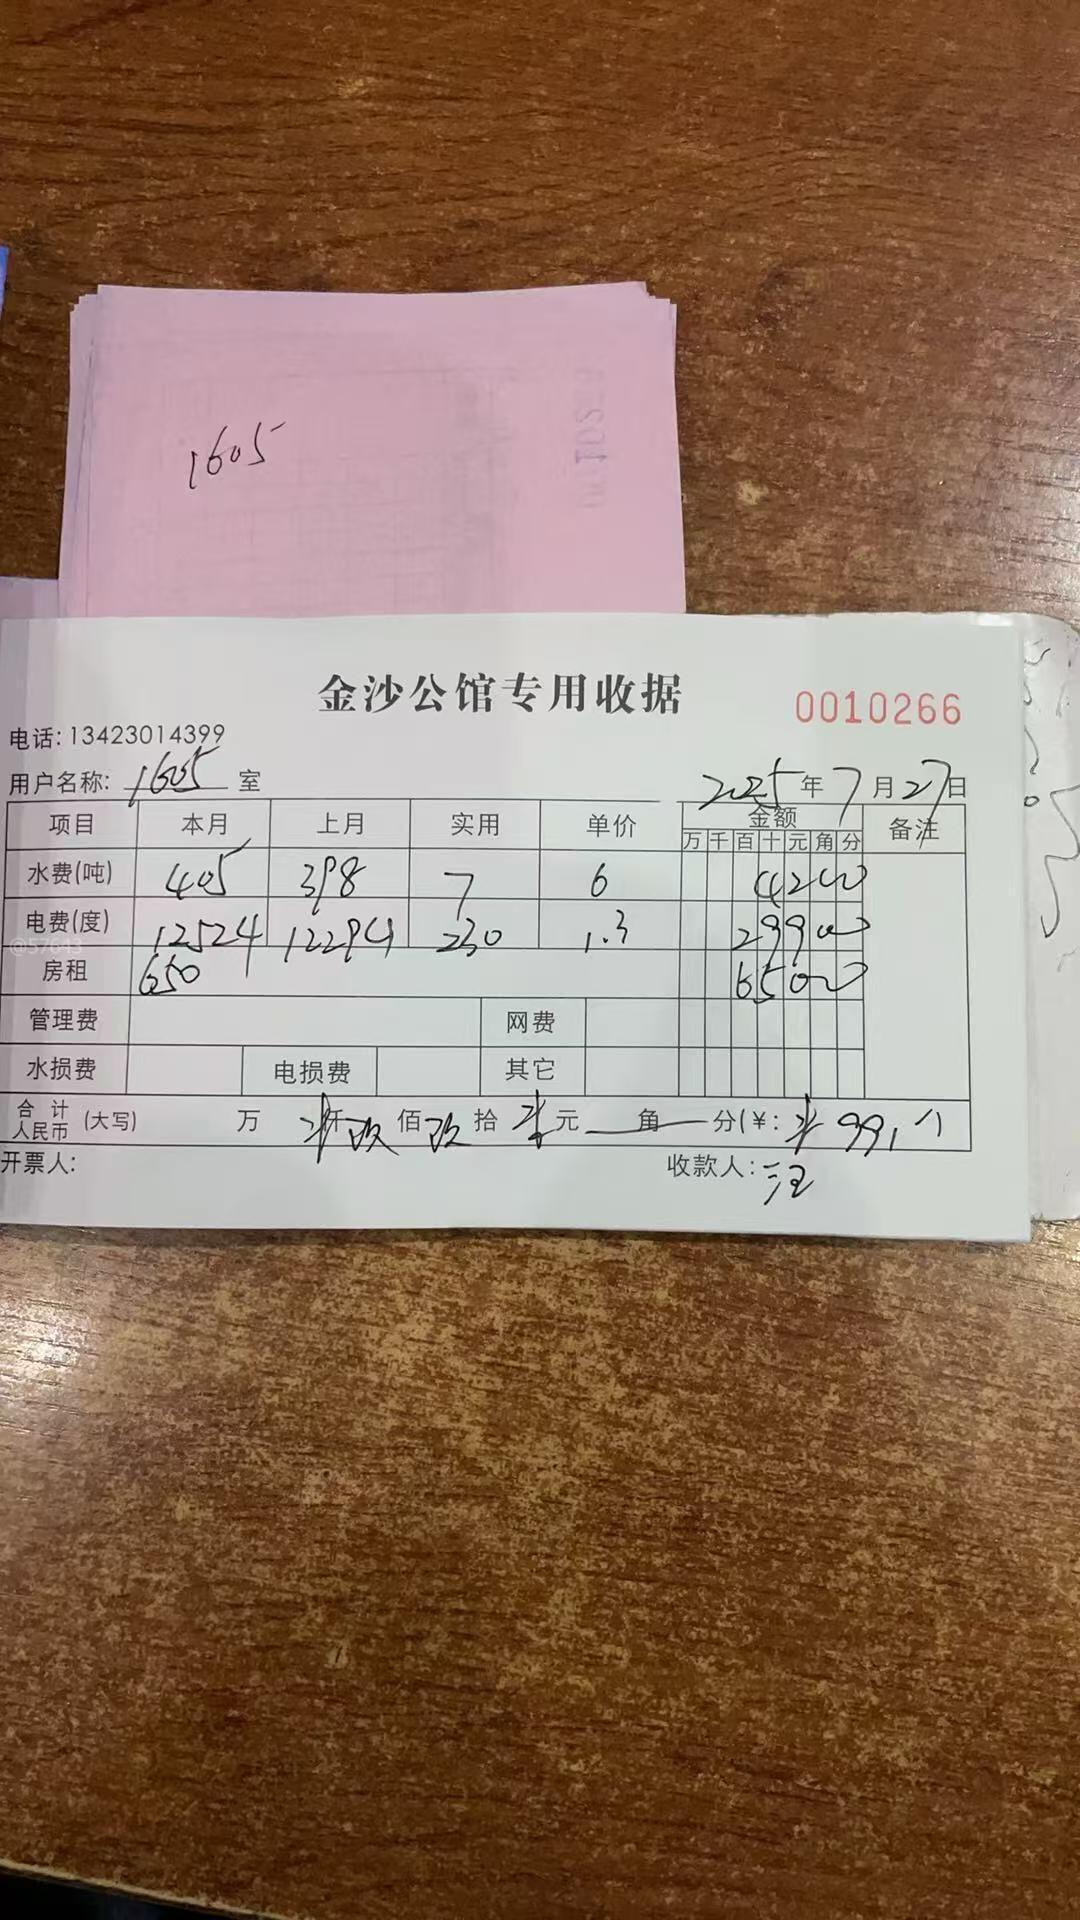 1605
金沙公馆专用收据
0010266
电话:13423014399
用户名称: 1605 室 2025年7月27日
项目 本月 上月 实用 单价 金额 备注
万 千 百 十 元 角 分
水费(吨) 405 398 7 6 4200
电费(度) 12524 12294 230 1.3 29900
@57643
房租 650 65000
管理费 网费
水损费 电损费 其它
合计人民币 (大写) 万 仟 玖 佰 玖 拾 元 角 分(¥: 991
开票人: 收款人: 汪